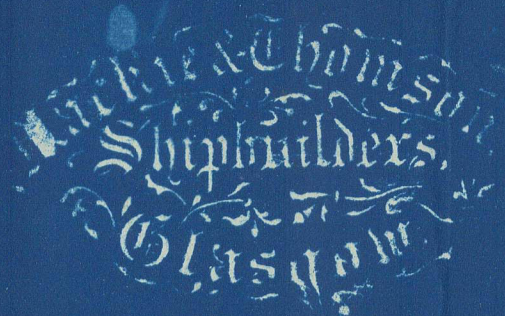 Mackie & Thomson
Shipbuilders,
Glasgow.